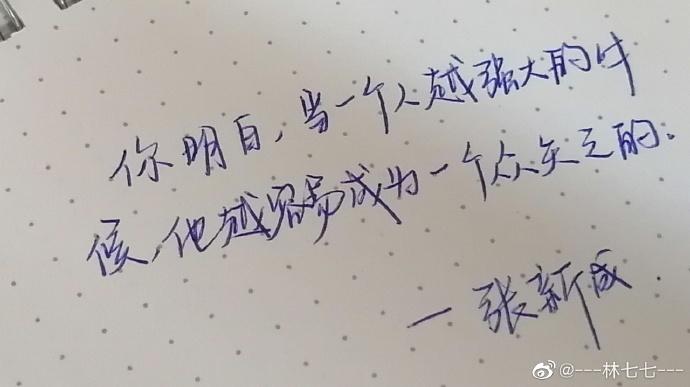 你明白，当一个人越强大的时
候，他越容易成为一个众矢之的。
—张新成
@---林七七---